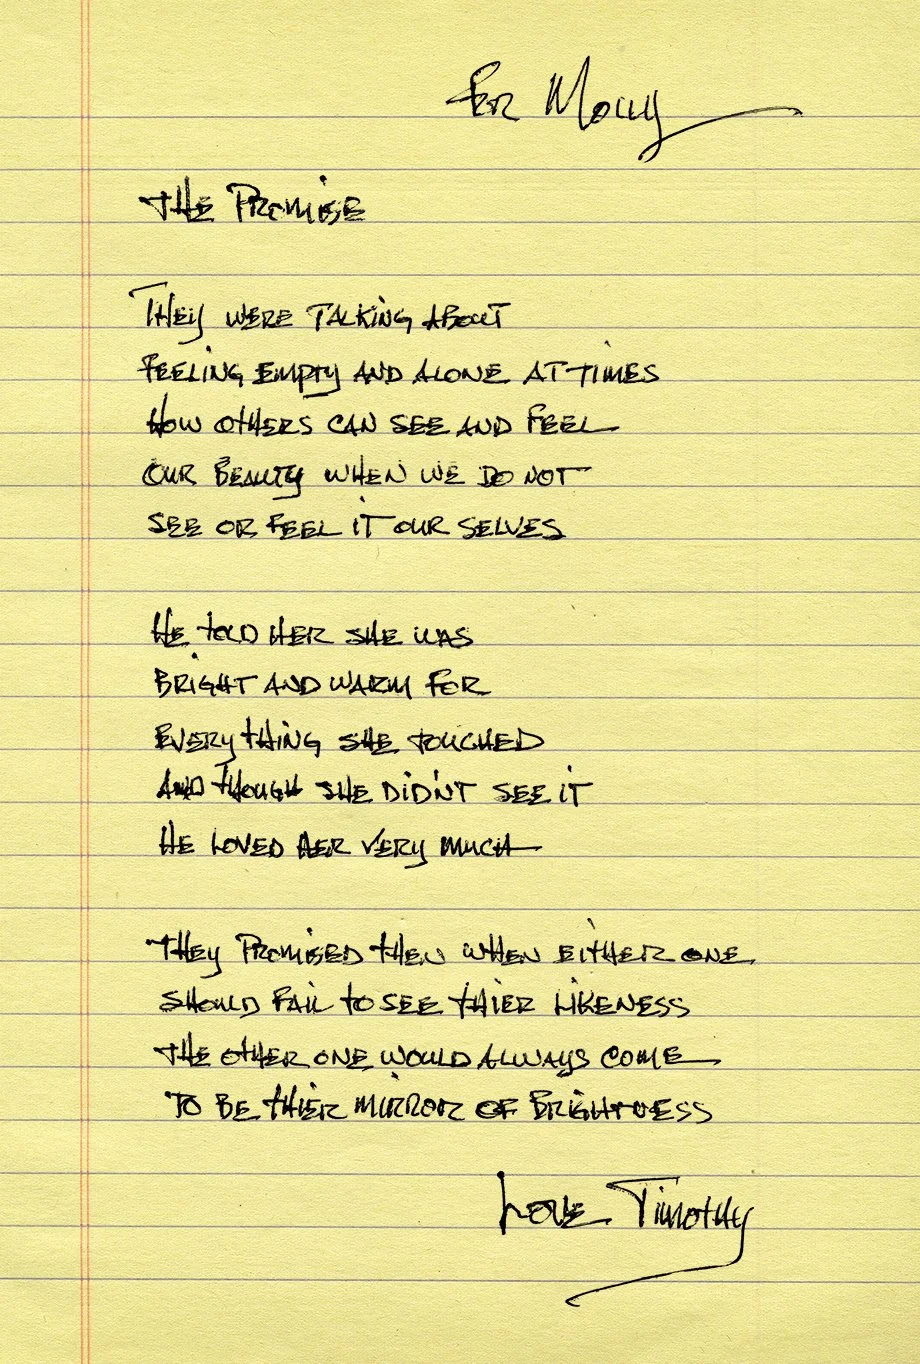 For Molly
The Promise
They were talking about
feeling empty and alone at times
How others can see and feel
our beauty when we do not
see or feel it our selves
He told her she was
bright and warm for
everything she touched
and though she didn't see it
He loved her very much
They promised then when either one
should fail to see thier likeness
the other one would always come
to be thier mirror of brightness
Love Timothy